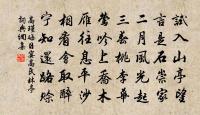 試入山亭望
言是石崇家
二月風光起
三春桃李華
鶯吟上喬木
雁往息平沙
相看會取醉
寧知還路賒
高瑾晦日宴高氏林亭
詞典網集